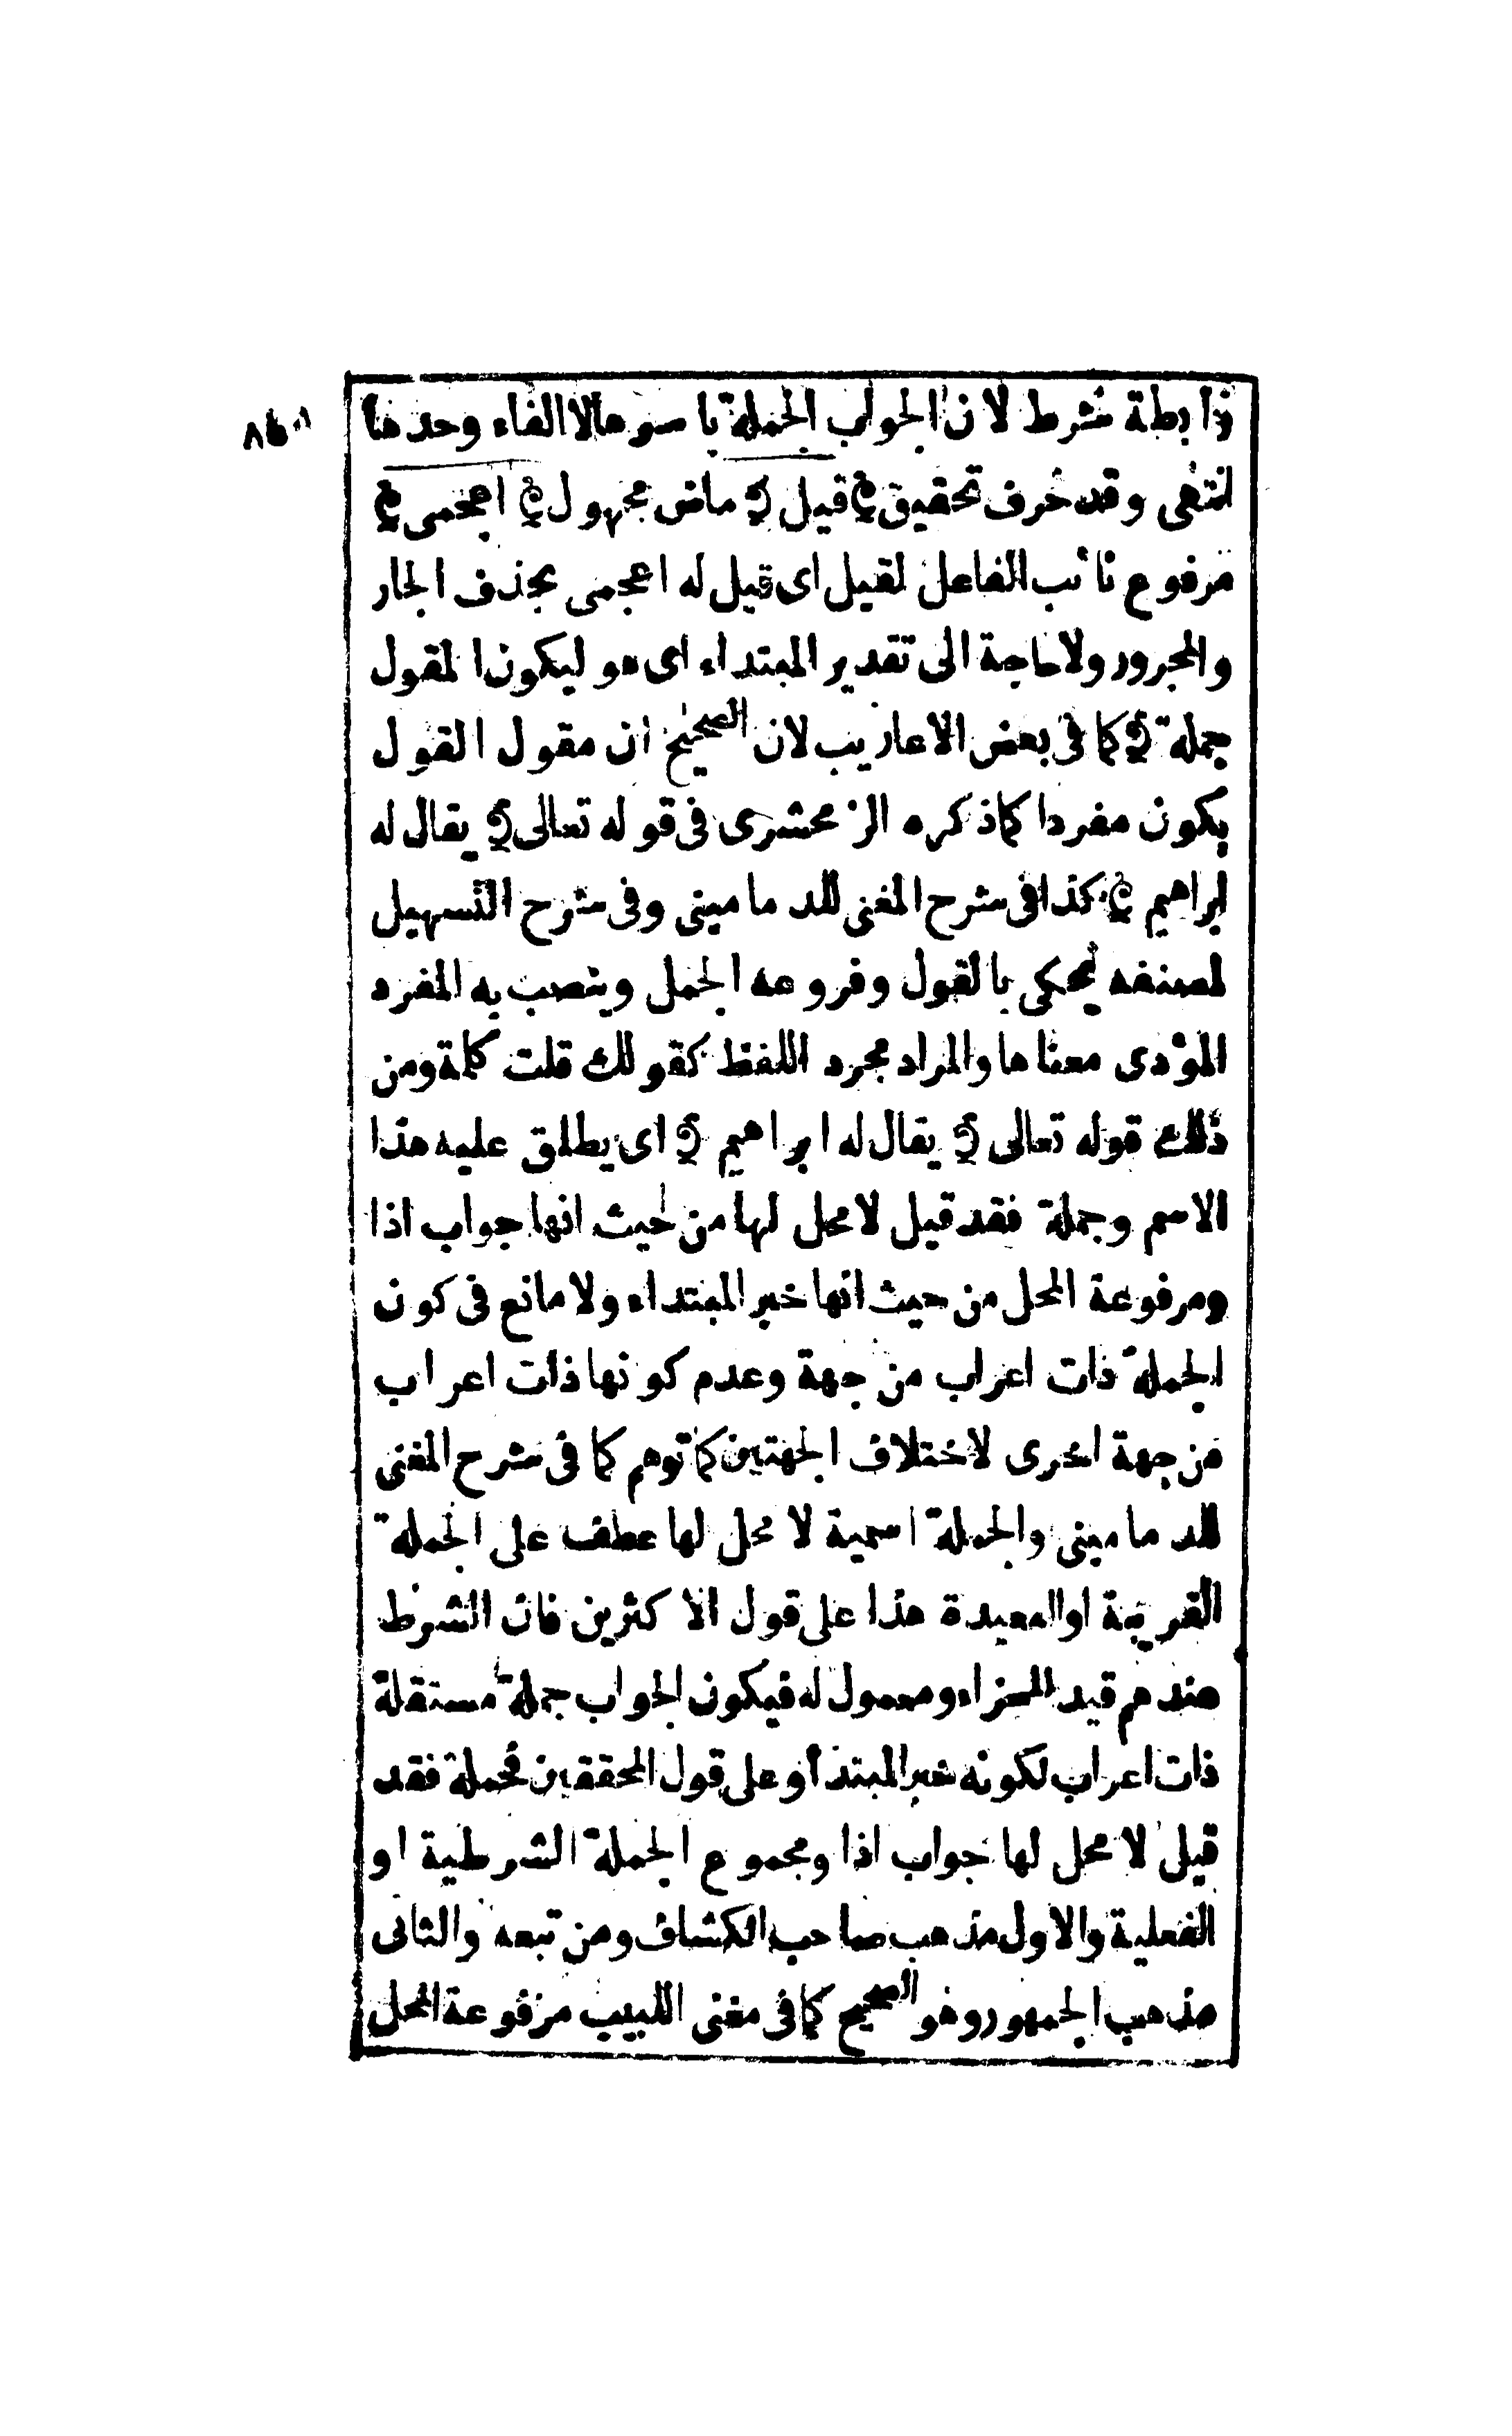 رابطة شرط لان الجواب الجملة باسرها لا الفاء وحدها
انتهى وقد حرف تحقيق قيل ماض مجهول اعجمى
مرفوع نائب الفاعل لقيل اى قيل له اعجمى بحذف الجار
والمجرور ولا حاجة الى تقدير المبتداء اى هو ليكون المقول
جملة كما فى بعض الاعاريب لان الصحيح ان مقول القول
يكون مفردا كما ذكره الزمحشرى فى قوله تعالى يقال له
ابراهيم كذا فى شرح المغنى للدمامينى وفى شرح التسهيل
لمصنفه يحكى بالقول وفروعه الجمل وينصب به المفرد
المؤدى معناها والمراد مجرد اللفظ كقولك قلت كلمة ومن
ذلك قوله تعالى يقال له ابراهيم اى يطلق عليه هذا
الاسم وجملة فقد قيل لا محل لها من حيث انها جواب اذا
ومرفوعة المحل من حيث انها خبر المبتداء ولا مانع فى كون
الجملة ذات اعراب من جهة وعدم كونها ذات اعراب
من جهة اخرى لاختلاف الجهتين كما توهم كما فى شرح المغنى
للدمامينى والجملة اسمية لا محل لها عطف على الجملة
القريبة او البعيدة هذا على قول الاكثرين فان الشرط
عندهم قيد للجزاء ومعمول له فيكون الجواب جملة مستقلة
ذات اعراب لكونه خبر المبتدأ وعلى قول المحققين فجملة فقد
قيل لا محل لها جواب اذا ومجموع الجملة الشرطية او
الفعلية والاول مذهب صاحب الكشاف ومن تبعه والثانى
مذهب الجمهور وهو الصحيح كما فى مغنى اللبيب مرفوعة المحل